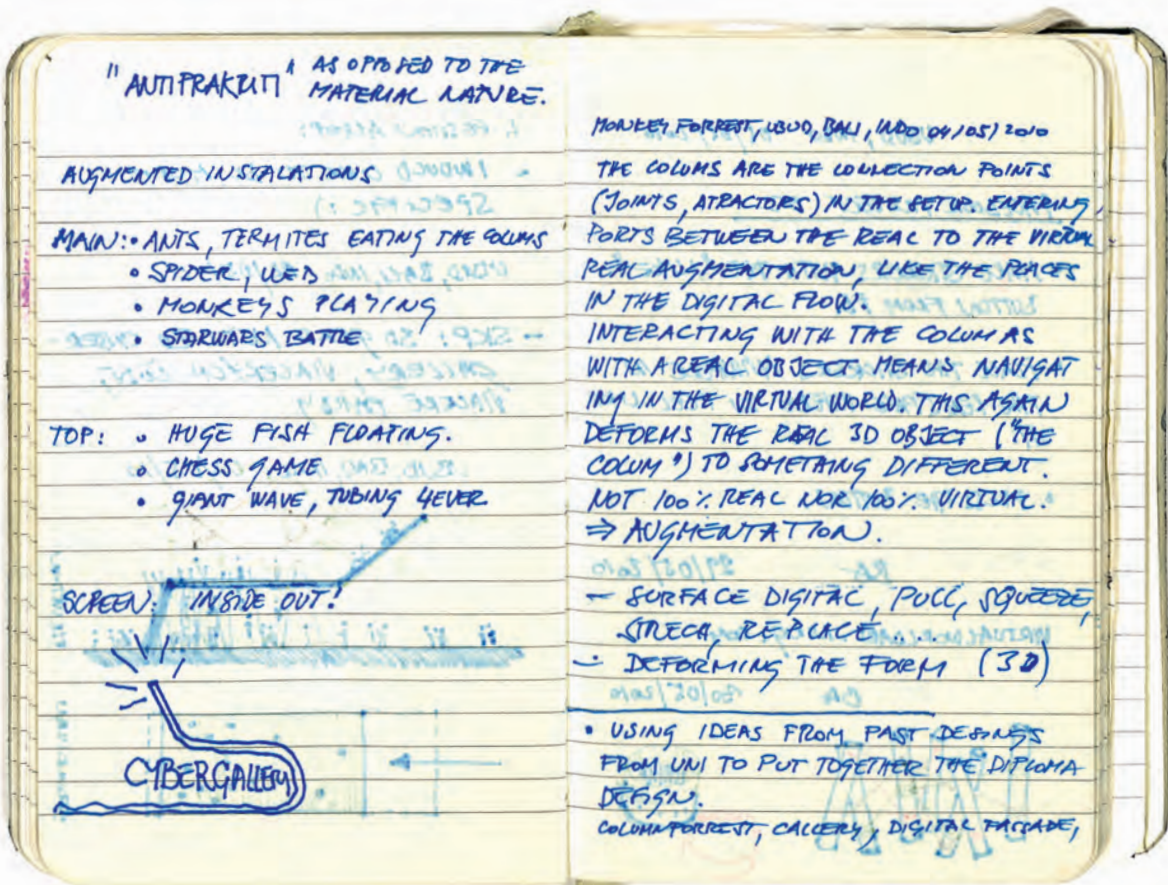 "ANTIPRAKRITI" AS OPPOSED TO THE
MATERIAL NATURE.
AUGMENTED INSTALATIONS
MAIN: • ANTS, TERMITES EATING THE COLUMS
• SPIDER, WEB
• MONKEYS PLAYING
• STARWARS BATTLE
TOP: • HUGE FISH FLOATING.
• CHESS GAME
• GIANT WAVE, TUBING 4EVER
SCREEN: INSIDE OUT!
CYBERGALLERY
MONKEY FORREST, UBUD, BALI, INDO 04/05/2010
THE COLUMS ARE THE CONNECTION POINTS
(JOINTS, ATRACTORS) IN THE SETUP. ENTERING
PORTS BETWEEN THE REAL TO THE VIRTUAL
REAL AUGMENTATION, LIKE THE PLACES
IN THE DIGITAL FLOW.
INTERACTING WITH THE COLUM AS
WITH A REAL OBJECT MEANS NAVIGAT
ING IN THE VIRTUAL WORLD. THIS AGAIN
DEFORMS THE REAL 3D OBJECT ("THE
COLUM") TO SOMETHING DIFFERENT.
NOT 100% REAL NOR 100% VIRTUAL.
⇒ AUGMENTATION.
– SURFACE DIGITAL, PULL, SQUEEZE,
STRECH, REPLACE ....
– DEFORMING THE FORM (3D)
• USING IDEAS FROM PAST DESINGS
FROM UNI TO PUT TOGETHER THE DIPLOMA
DESIGN.
COLUMNFORREST, GALLERY, DIGITAL FASSADE,